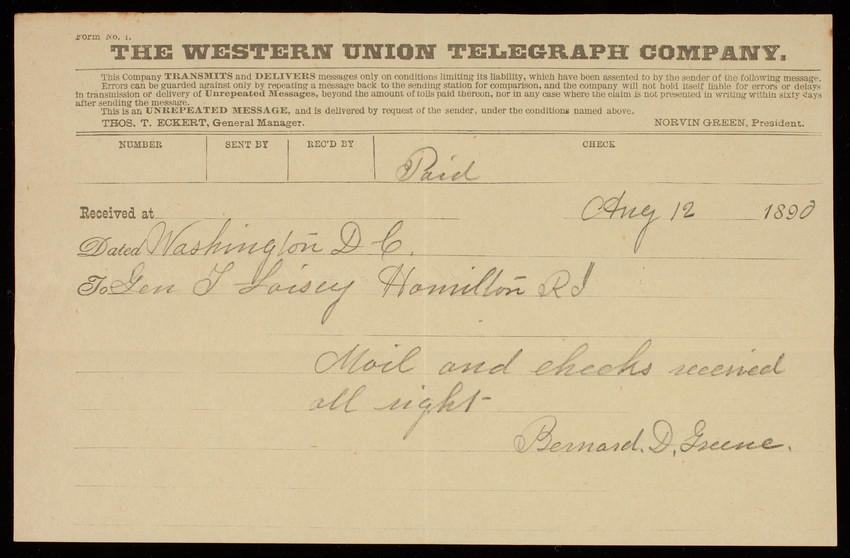 Form No. 1.
THE WESTERN UNION TELEGRAPH COMPANY.
This Company TRANSMITS and DELIVERS messages only on conditions limiting its liability, which have been assented to by the sender of the following message.
Errors can be guarded against only by repeating a message back to the sending station for comparison, and the company will not hold itself liable for errors or delays
in transmission or delivery of Unrepeated Messages, beyond the amount of tolls paid thereon, nor in any case where the claim is not presented in writing within sixty days
after sending the message.
This is an UNREPEATED MESSAGE, and is delivered by request of the sender, under the conditions named above.
THOS. T. ECKERT, General Manager. NORVIN GREEN, President.
NUMBER SENT BY REC'D BY CHECK
Paid
Received at Aug 12 1890
Dated Washington D C.
To Gen T Loisey Hamilton R I
Mail and checks received
all right
Bernard. D. Greene.